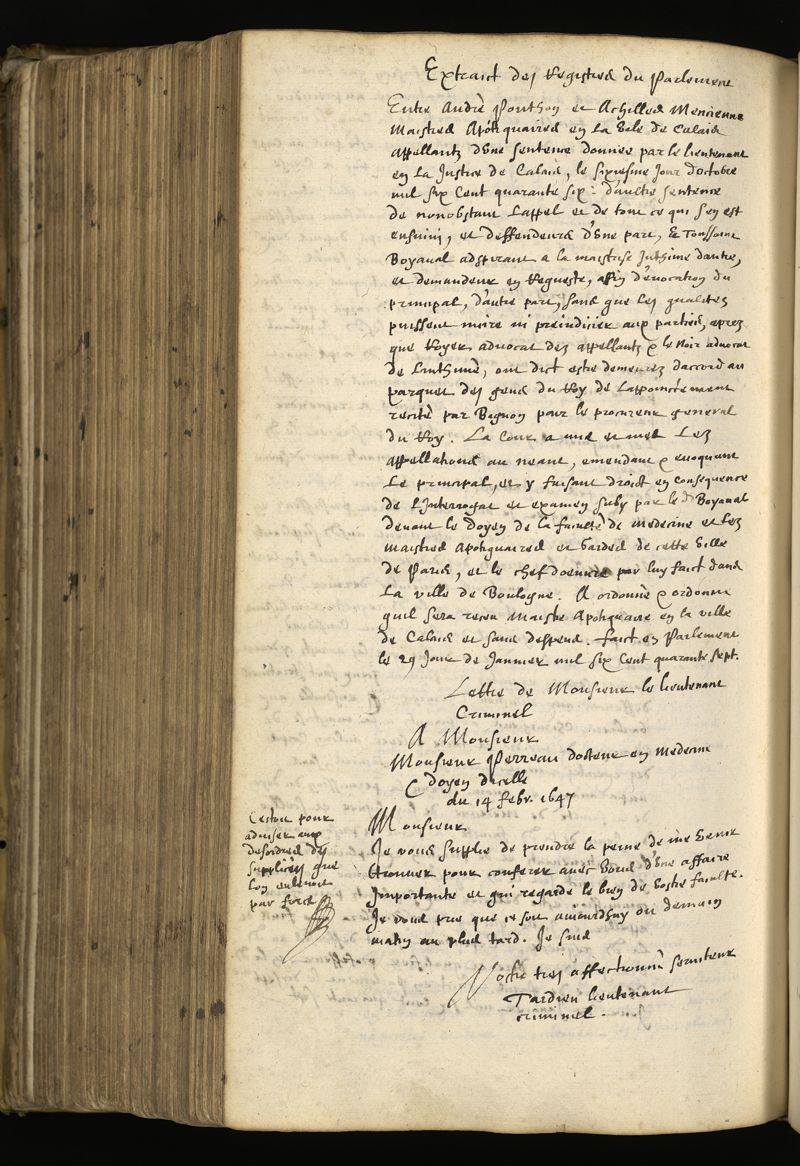 Extraict des Registres du Parlement
Entre André Ponthon et Achilles Mencienne
Maistres Apotiquaires en la Ville de Calais
Appellants d'une sentence donnée par le lieutenant
en la Justice de Calais, le sixiesme Jour d'octobre
mil six Cent quarante six : d'aultre sentence
de nonobstant l'appel et de tout ce qui s'en est
ensuivi, et deffendeurs d'une part, & Toussaint
Boyaual adspirant a la maistrise Inthimé d'autre,
et demandeur en Requeste, affin d'evocation du
principal, d'autre part, sans que les qualitez
puissent nuire ni preiudicier aux parties, aprez
que Royer advocat des appellants & le Noir advocat
de l'inthimé, ont dict estre demeurez d'accord au
parquet des gens du Roy de l'appoinctement
recité par Bignon pour le procureur general
du Roy. La Cour a mis et met Les
Appellations au neant, emendant & evoquant
Le principal, et y faisant droict en consequence
de l'Interrogat et examen suby par le d. Boyaual
devant le doyen de la faculté de medecine et les
maistres Apotiquaires et Gardes de cette Ville
de Paris, et le chef doeuure par luy faict dans
La ville de Boulogne. A ordonné & ordonne
quil sera receu Maistre Apotiquaire en la ville
de Calais et sans despens. faict en Parlement
le 29 Jour de Janvier mil six Cent quarante sept.
Lettre de Monsieur le lieutenant
Criminel
A Monsieur
Monsieur Perreau docteur en medecine
& doyen dicelle
du 14 febr. 1647
Monsieur
Je vous supplie de prendre la peine de me venir
trouver pour conferer avec vous d'une affaire
Importante et qui regarde le bien de vostre faculté.
Je vous prie que ce soit aujourdhuy ou demain
matin au plus tard. Je suis
Vostre tres affectionné seruiteur
Tardieu lieutenant
criminel.
Cestoit pour
adviser aux
desordres des
supplices que
lon enlevoit
par force